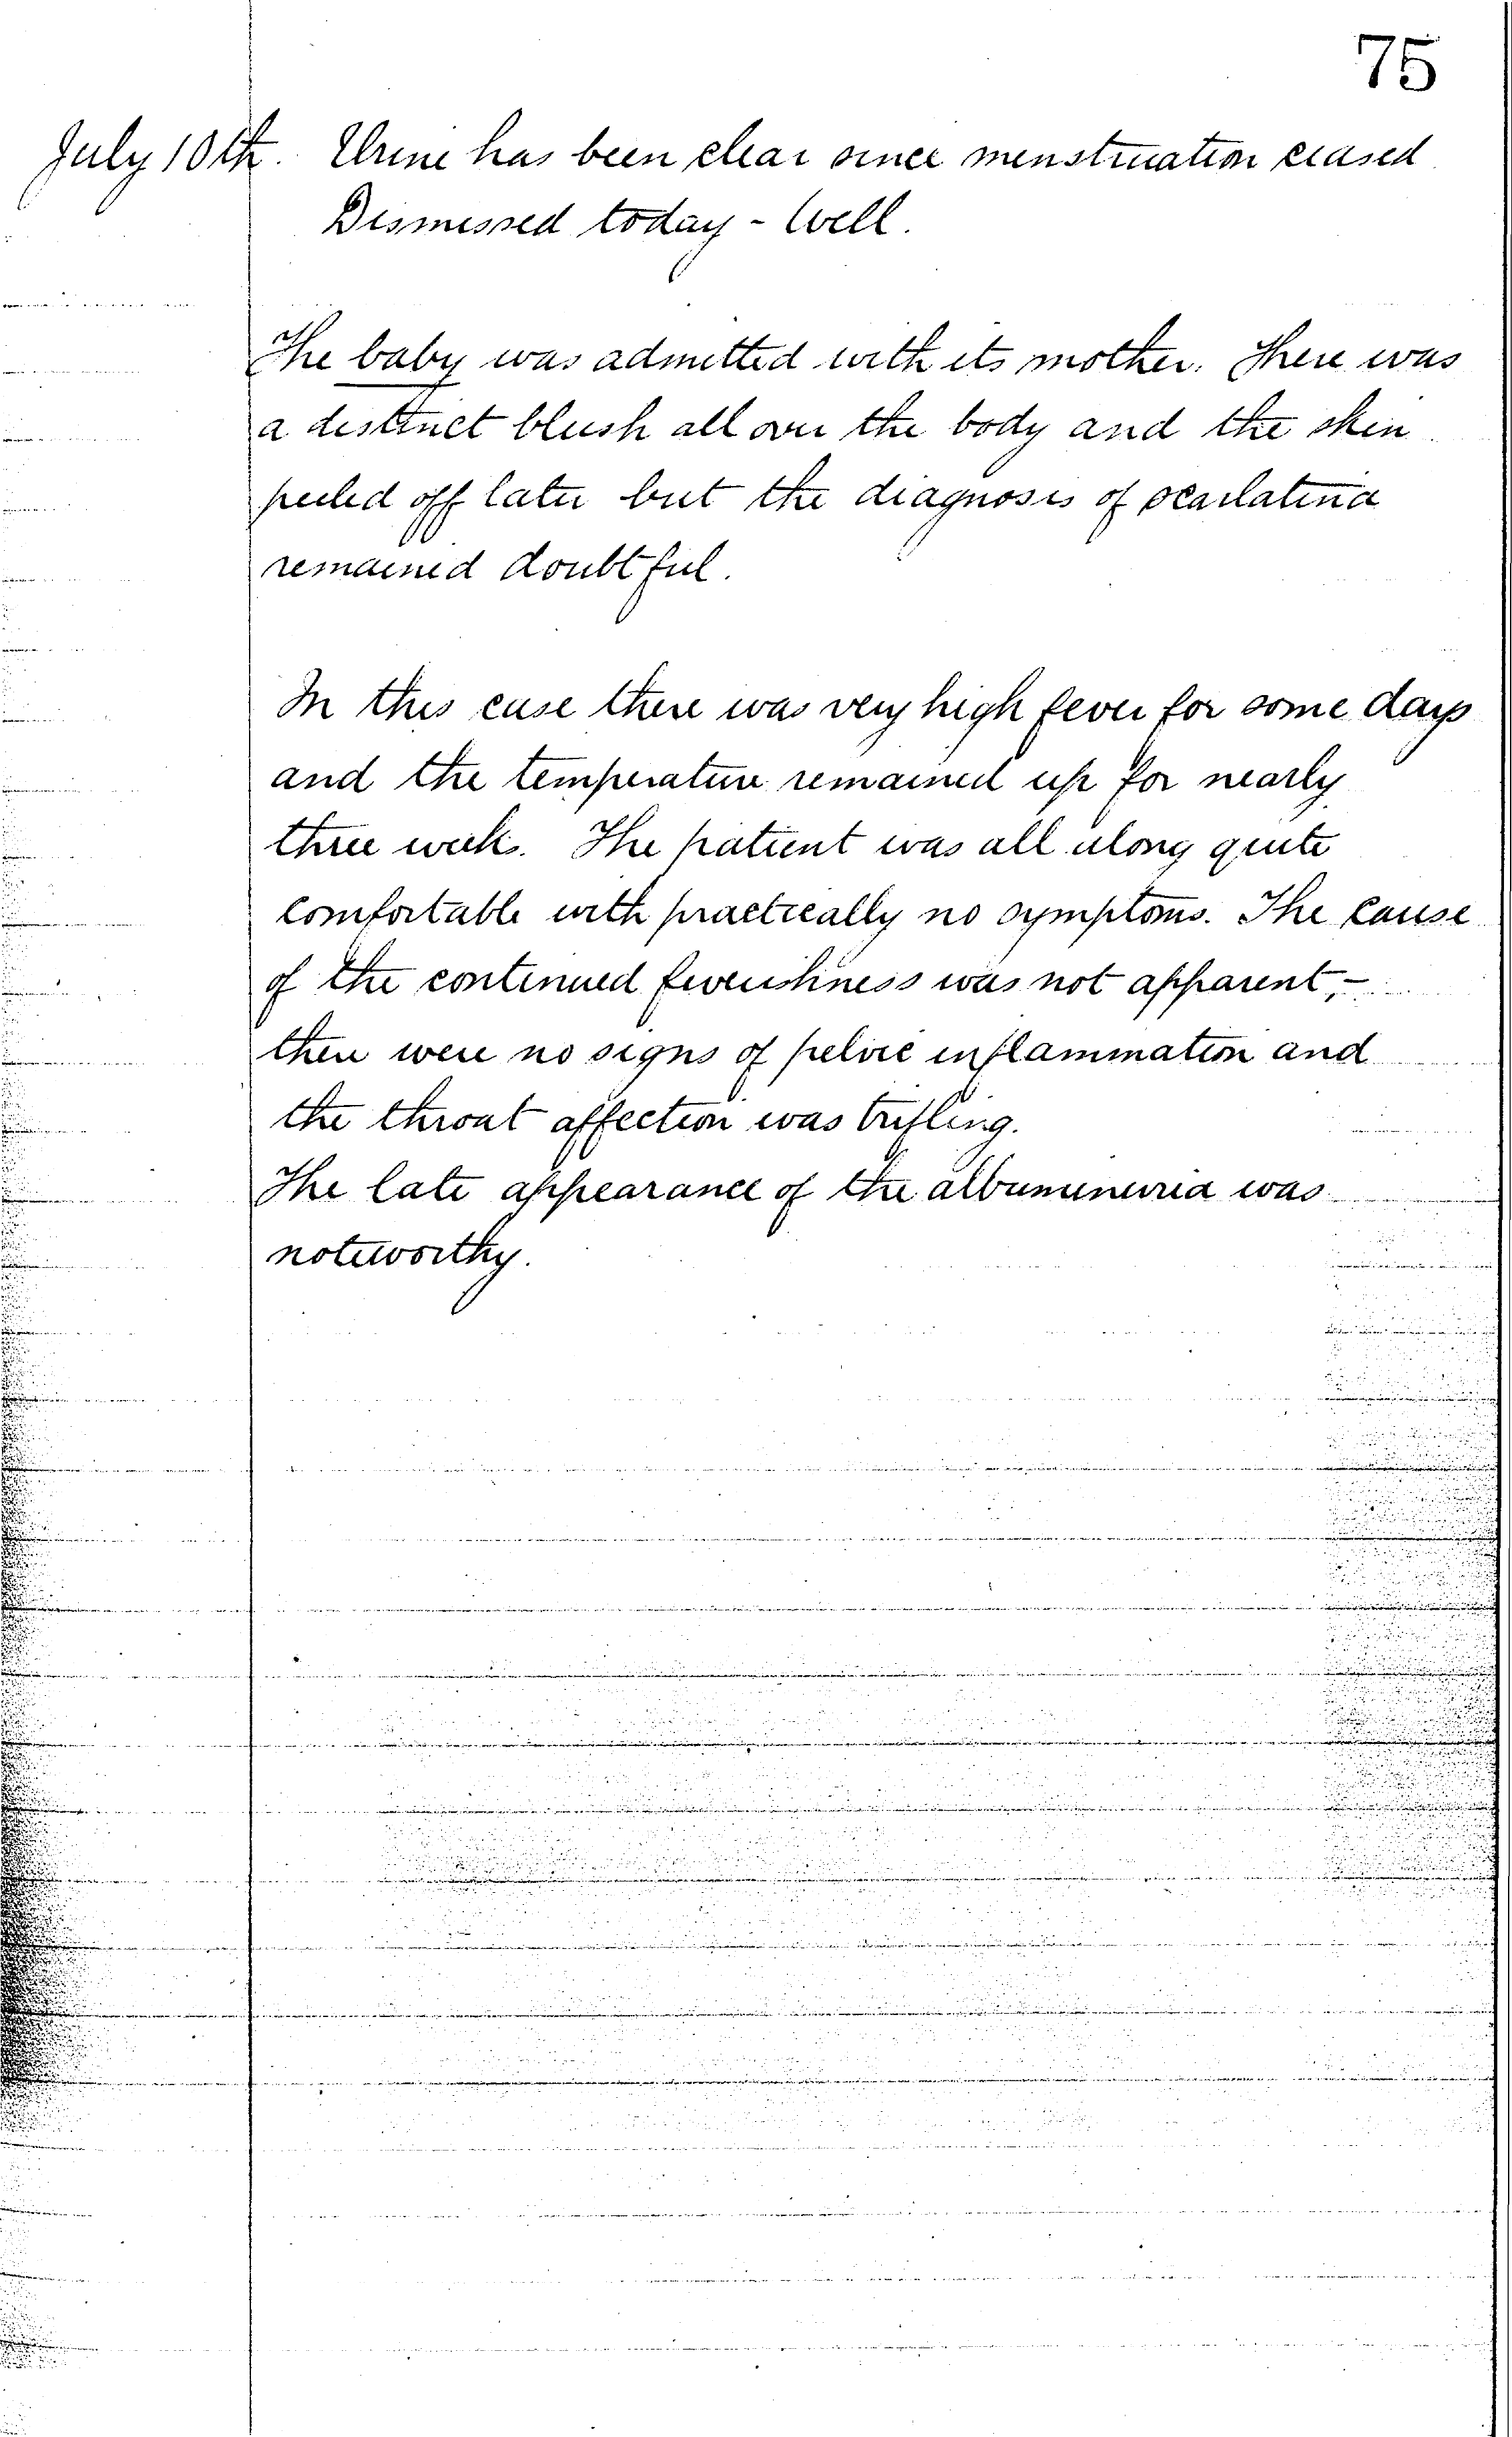 75
July 10th. Urine has been clear since menstruation ceased
Dismissed today - Well.
The baby was admitted with its mother. There was
a distinct blush all over the body and the skin
peeled off later but the diagnosis of scarlatina
remained doubtful.
In this case there was very high fever for some days
and the temperature remained up for nearly
three weeks. The patient was all along quite
comfortable with practically no symptoms. The cause
of the continued feverishness was not apparent, -
there were no signs of pelvic inflammation and
the throat affection was trifling.
The late appearance of the albuminuria was
noteworthy.